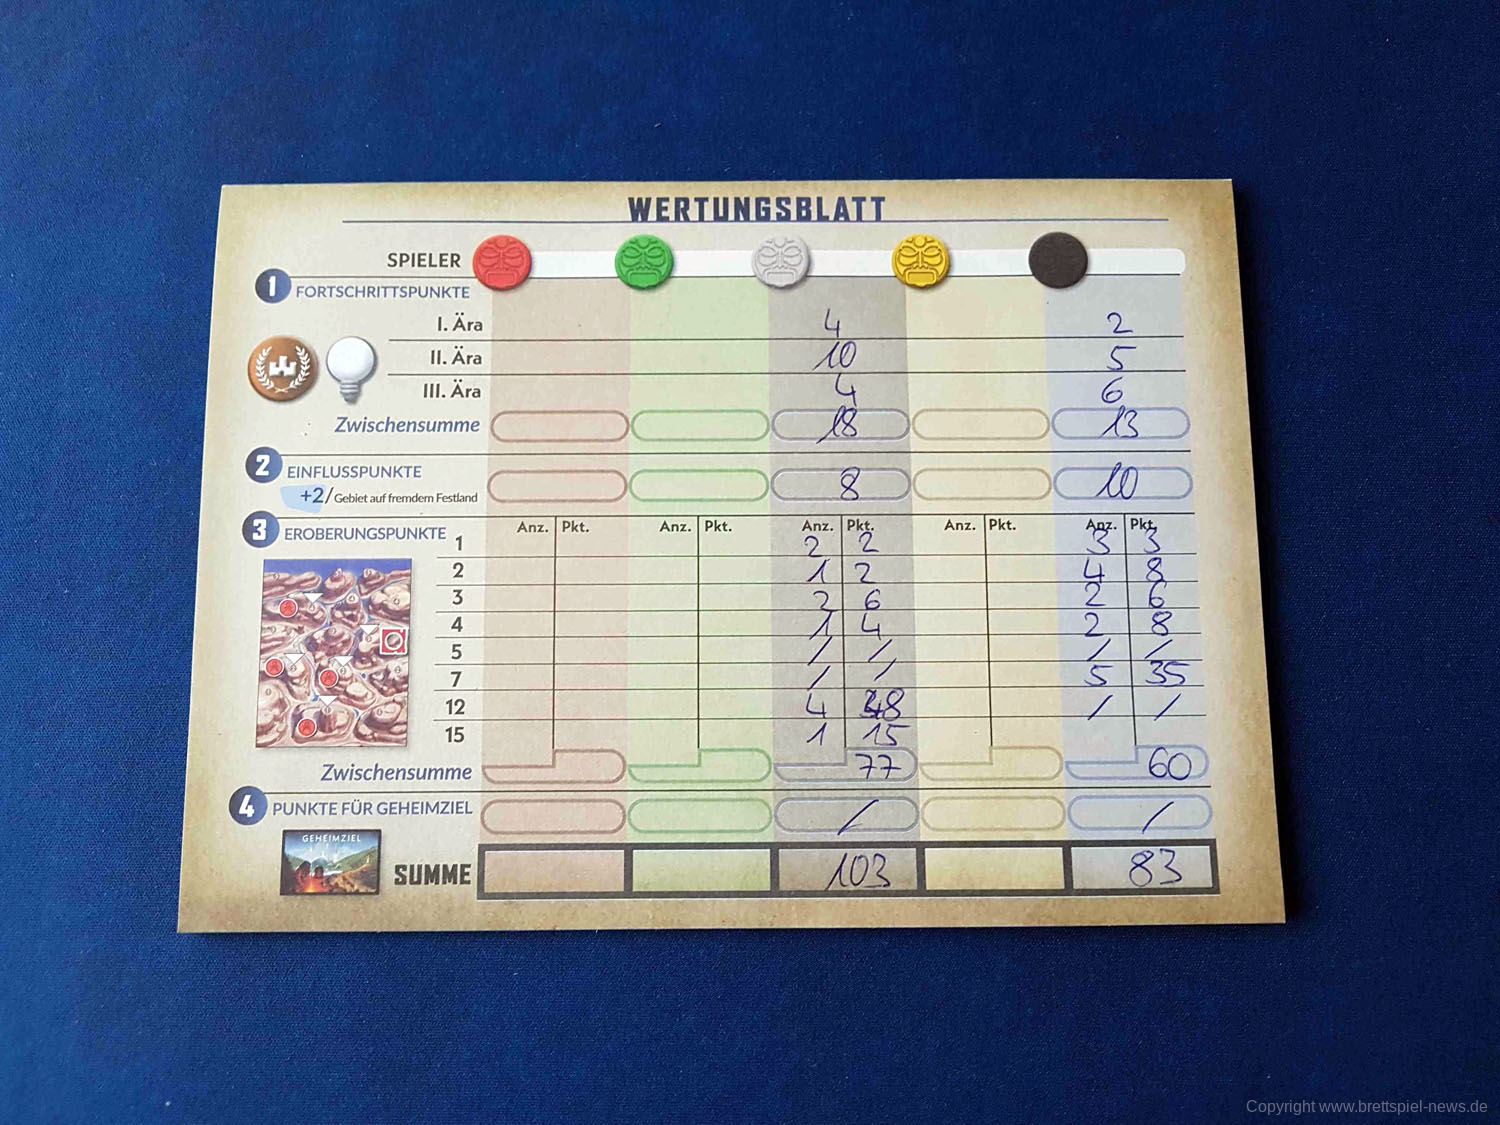 WERTUNGSBLATT
SPIELER
1 FORTSCHRITTSPUNKTE
I. Ära 4 2
II. Ära 10 5
III. Ära 4 6
Zwischensumme 18 13
2 EINFLUSSPUNKTE
+2/Gebiet auf fremdem Festland 8 10
3 EROBERUNGSPUNKTE Anz. Pkt. Anz. Pkt. Anz. Pkt. Anz. Pkt. Anz. Pkt.
1 2 2 3 3
2 1 2 4 8
3 2 6 2 6
4 1 4 2 8
5 / / / /
7 / / 5 35
12 4 48 / /
15 1 15
Zwischensumme 77 60
4 PUNKTE FÜR GEHEIMZIEL / /
GEHEIMZIEL
SUMME 103 83
Copyright www.brettspiel-news.de